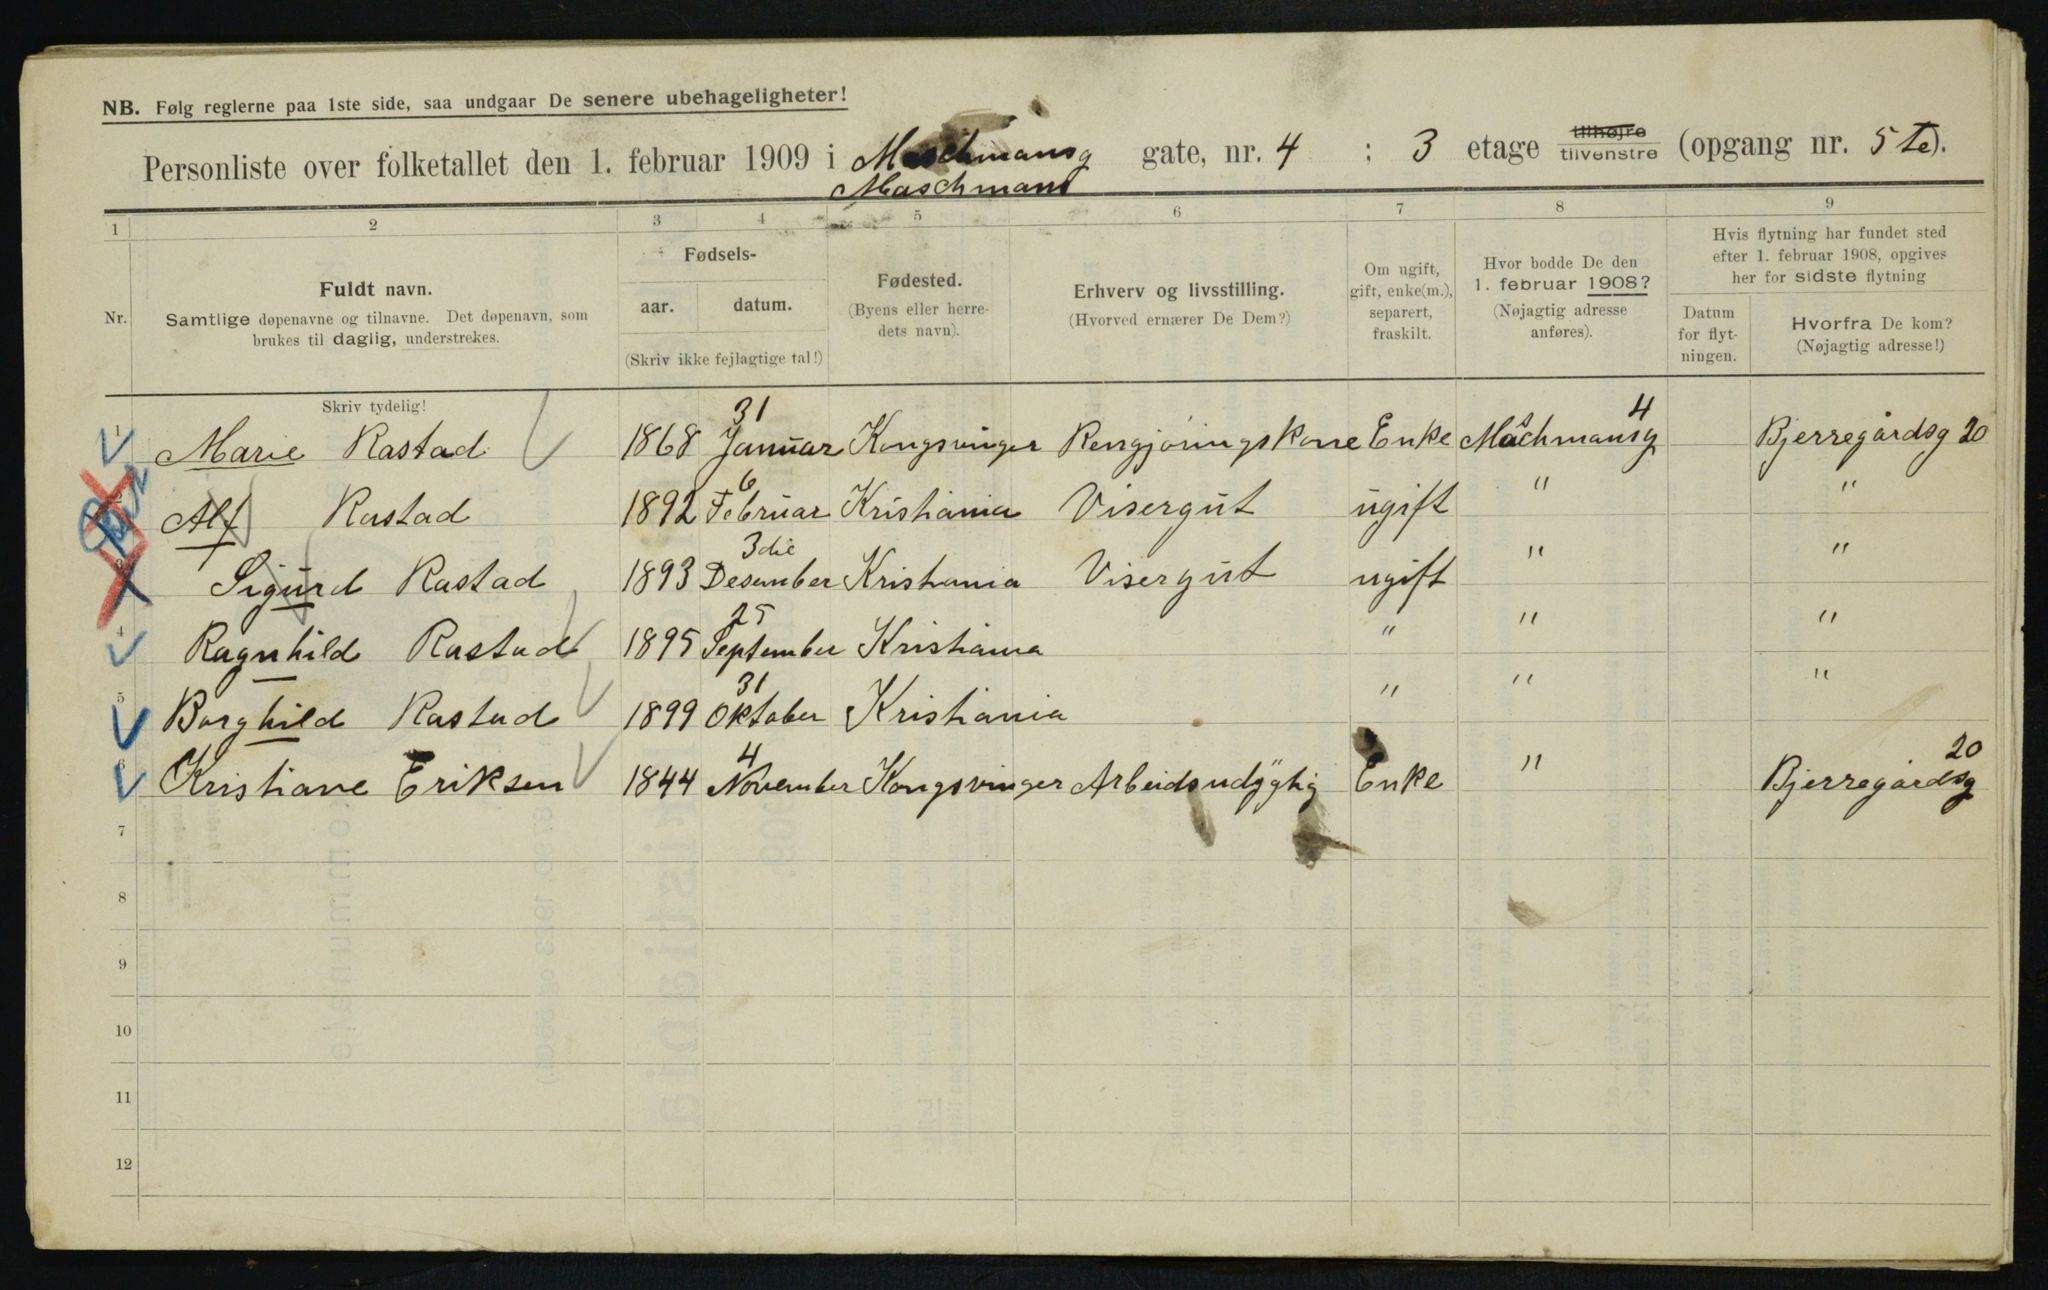 NB. Følg reglerne paa 1ste side, saa undgaar De senere ubehageligheter!
Personliste over folketallet den 1. februar 1909 i Maschmansg gate, nr. 4 ; 3 etage tilhøjre tilvenstre (opgang nr. 5te).
Maschmans
1 2 3 4 5 6 7 8 9
Nr.
Fuldt navn.
Samtlige døpenavne og tilnavne. Det døpenavn, som
brukes til daglig, understrekes.
Skriv tydelig!
Fødsels-
aar. datum.
(Skriv ikke fejlagtige tal!)
Fødested.
(Byens eller herre-
dets navn).
Erhverv og livsstilling.
(Hvorved ernærer De Dem?)
Om ugift,
gift, enke(m.),
separert,
fraskilt.
Hvor bodde De den
1. februar 1908?
(Nøjagtig adresse
anføres).
Hvis flytning har fundet sted
efter 1. februar 1908, opgives
her for sidste flytning
Datum
for flyt-
ningen.
Hvorfra De kom?
(Nøjagtig adresse!)
1 Marie Rastad 1868 31 Januar Kongsvinger Rengjøringskone Enke Maschmansg 4 Bjerregårdsg 20
2 Alf Rastad 1892 6 Februar Kristiania Visergut ugift " "
3 Sigurd Rastad 1893 3die Desember Kristiania Visergut ugift " "
4 Ragnhild Rastad 1895 25 September Kristiania " " "
5 Borghild Rastad 1899 31 Oktober Kristiania " " "
6 Kristiane Eriksen 1844 4 November Kongsvinger Arbeidsudygtig Enke " Bjerregårdsg 20
7
8
9
10
11
12